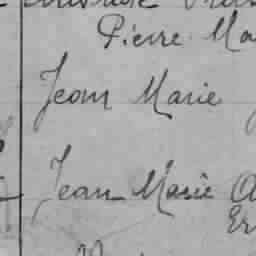 Pierre Ma
Jean Marie
Jean Marie A
Er